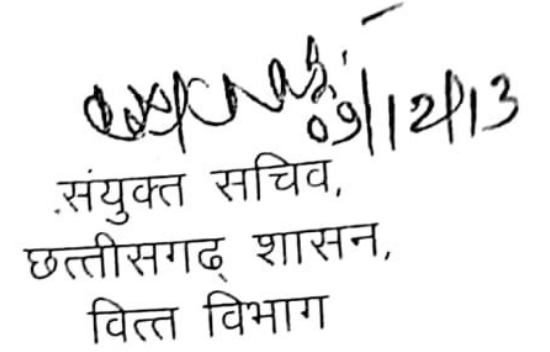 09/12/13
संयुक्त सचिव,
छत्तीसगढ़ शासन,
वित्त विभाग